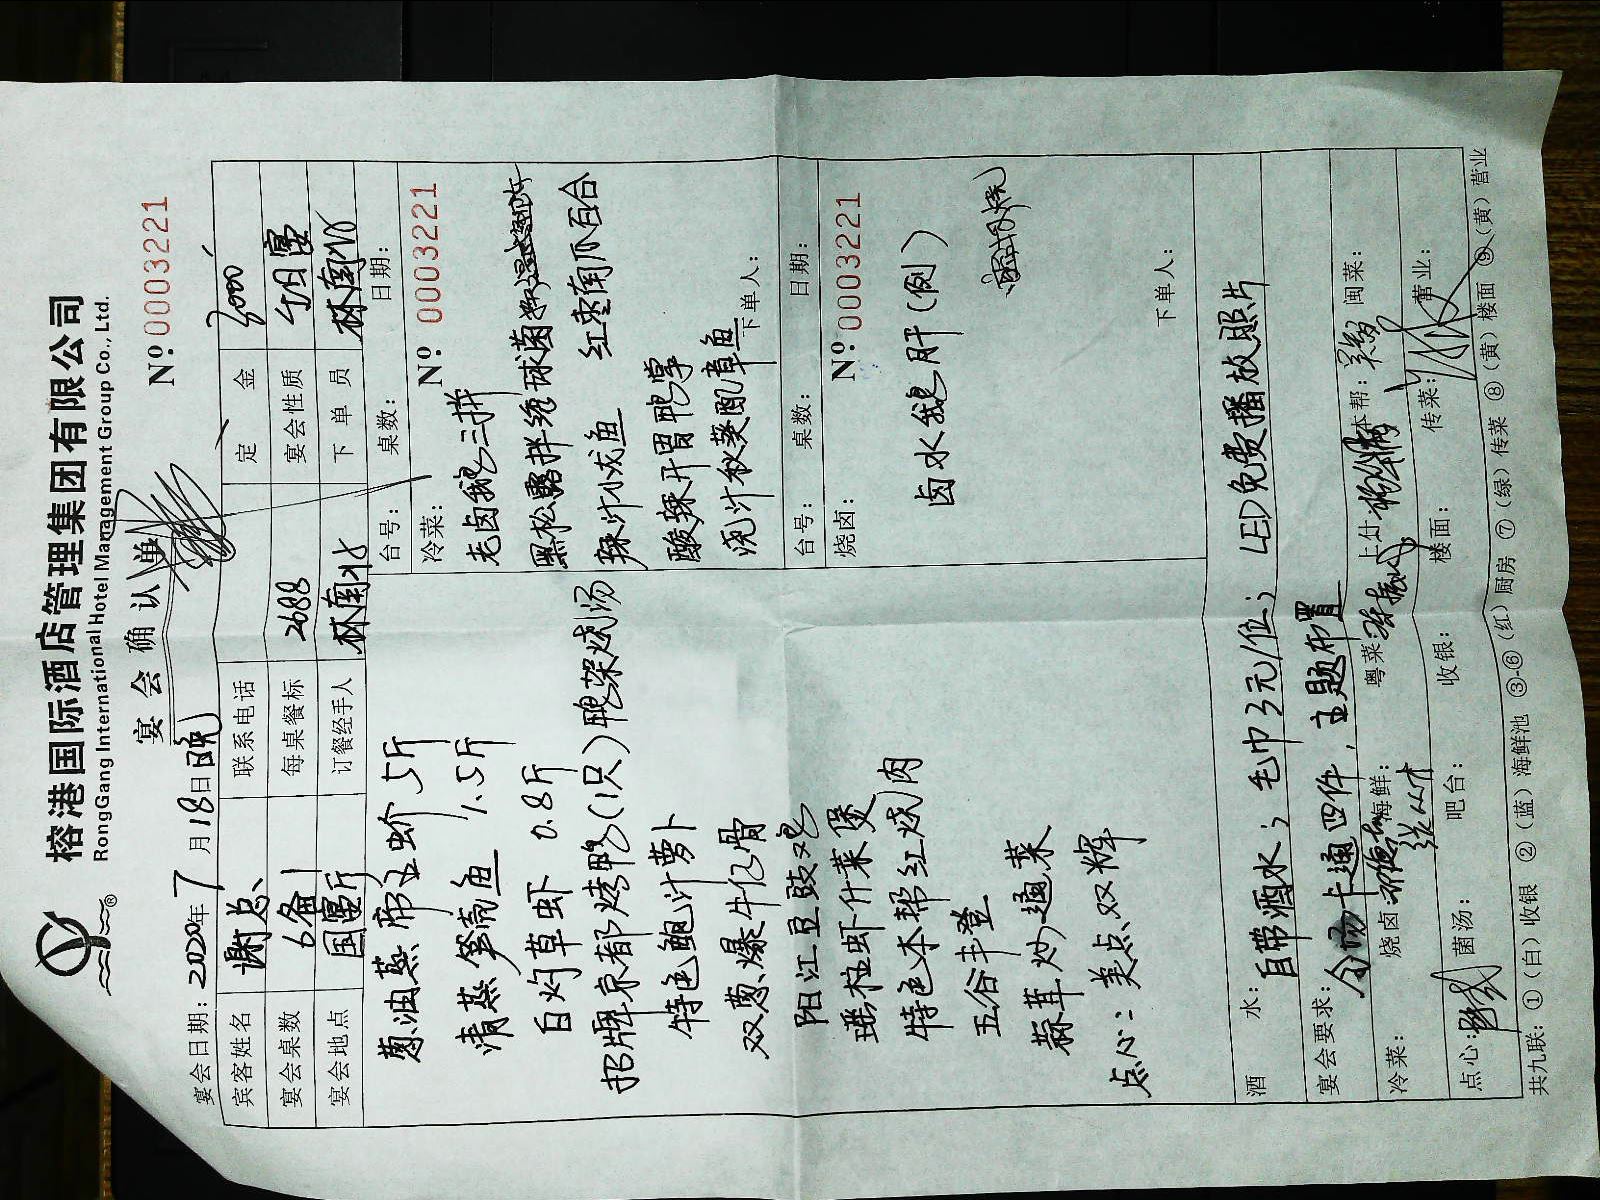 榕港国际酒店管理集团有限公司
RongGang International Hotel Management Group Co., Ltd.
宴会确认单
№:0003221
宴会日期：2020年7月18日晚
宾客姓名 谢总 联系电话 定金 3000
宴会桌数 6备1 每桌餐标 2688 宴会性质 生日宴
宴会地点 国宴厅 订餐经手人 林南北 下单员 林南北
葱油蒸帝王蚧5斤
清蒸笋壳鱼 1.5斤
白灼草虾 0.8斤
招牌京都烤鸭(1只)鸭架烧汤
特色鲍汁萝卜
双葱爆牛仔骨
阳江豆豉鸡
瑶柱虾什菜煲
特色本帮红烧肉
五谷丰登
蒜茸炒通菜
点心：美点双辉
台号： 桌数： 日期：
冷菜： №:0003221
老卤鹅三拼
黑松露拌绣球菌
辣汁小龙鱼 红枣南瓜百合
酸辣开胃鸭掌
浇汁秋葵配章鱼
下单人：
台号： 桌数： 日期：
烧卤： №:0003221
卤水鹅肝(例)
下单人：
酒水： 自带酒水；毛巾3元/位；LED免费播放照片
宴会要求： 全场卡通四件，主题布置
冷菜： 烧卤： 海鲜： 粤菜： 上什： 本帮： 闽菜：
点心： 菌汤： 吧台： 收银： 楼面： 传菜： 营业：
共九联：①（白）收银 ②（蓝）海鲜池 ③-⑥（红）厨房 ⑦（绿）传菜 ⑧（黄）楼面 ⑨（黄）营业